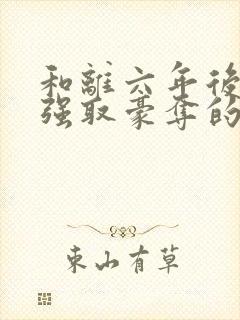 和離六年後
强取豪奪的
東山有草